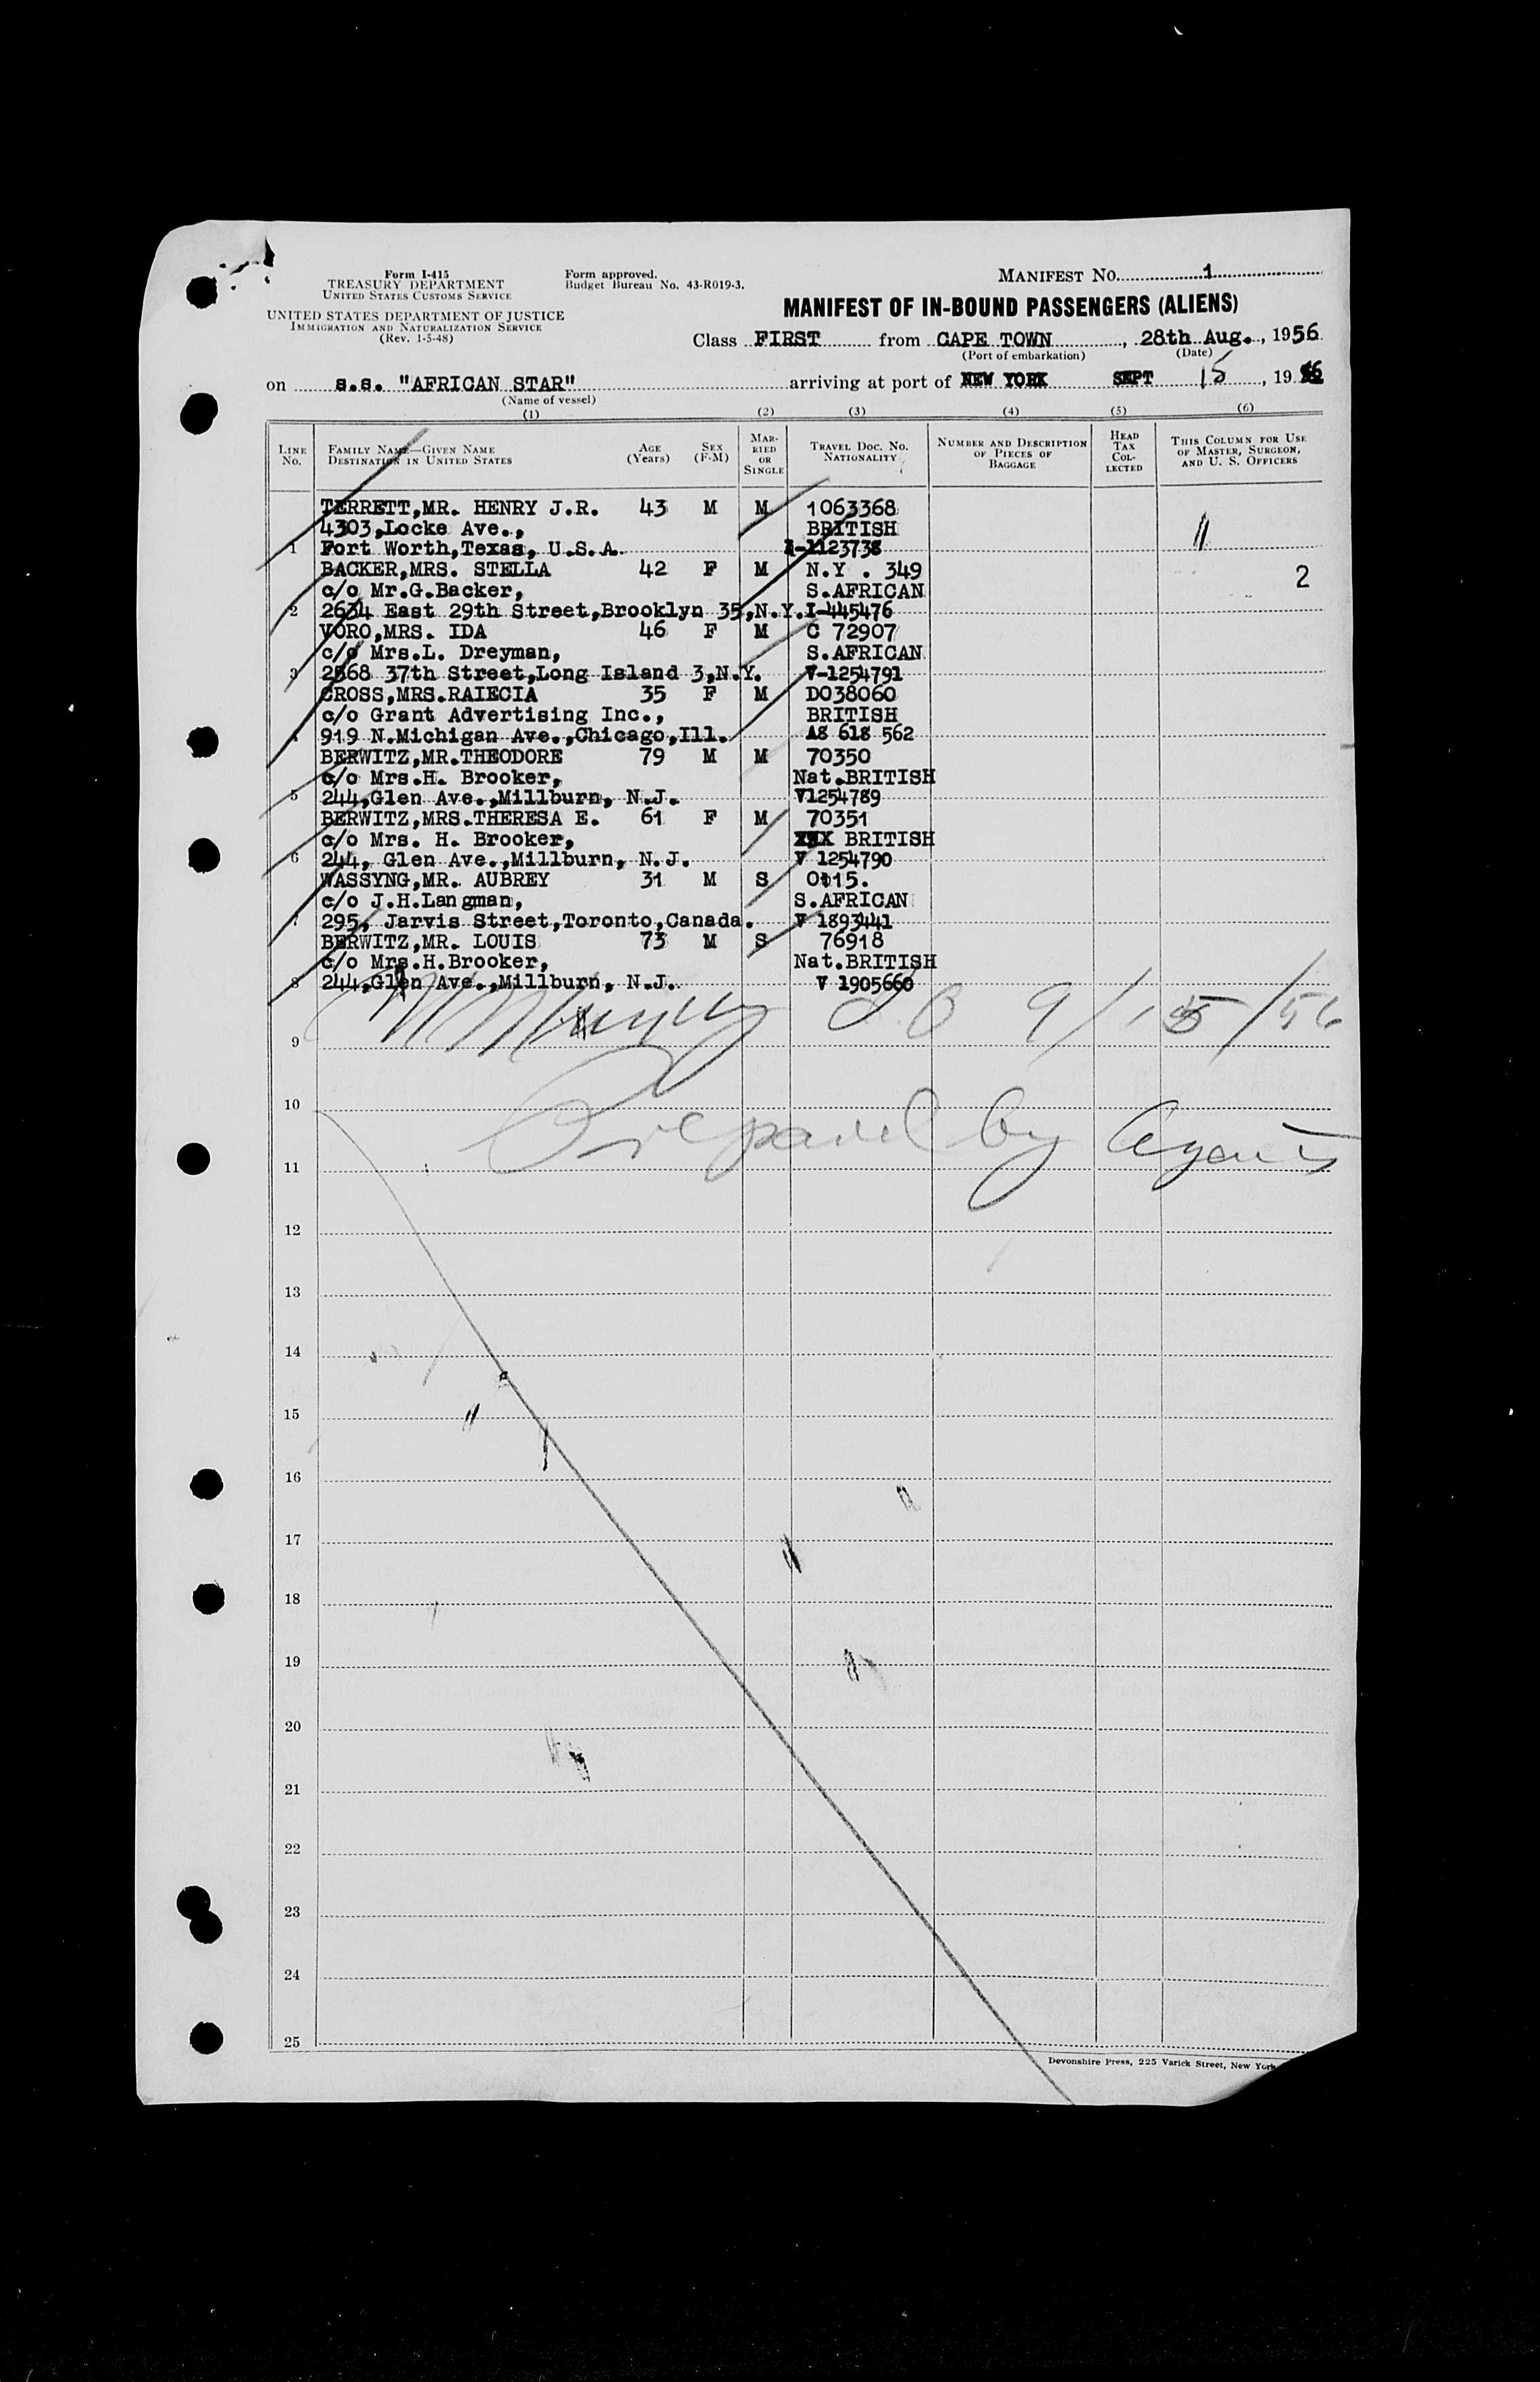 Form I-415
TREASURY DEPARTMENT
UNITED STATES CUSTOMS SERVICE
UNITED STATES DEPARTMENT OF JUSTICE
IMMIGRATION AND NATURALIZATION SERVICE
(Rev. 1-5-48)
Form approved.
Budget Bureau No. 43-R019-3.
MANIFEST NO. 1
MANIFEST OF IN-BOUND PASSENGERS (ALIENS)
Class FIRST from CAPE TOWN, 28th Aug., 1956
(Port of embarkation) (Date)
on s.s. "AFRICAN STAR" arriving at port of NEW YORK SEPT 15, 1956
(Name of vessel)
(1) (2) (3) (4) (5) (6)
LINE NO. FAMILY NAME—GIVEN NAME DESTINATION IN UNITED STATES AGE (Years) SEX (F-M) MARRIED OR SINGLE TRAVEL DOC. NO. NATIONALITY NUMBER AND DESCRIPTION OF PIECES OF BAGGAGE HEAD TAX COLLECTED THIS COLUMN FOR USE OF MASTER, SURGEON, AND U. S. OFFICERS
TERRETT,MR. HENRY J.R. 43 M M 1063368
4303,Locke Ave., BRITISH
1 Fort Worth,Texas, U.S.A. I-1123738
BACKER,MRS. STELLA 42 F M N.Y . 349 2
c/o Mr.G.Backer, S.AFRICAN
2 2634 East 29th Street,Brooklyn 35,N.Y.I-445476
VORO,MRS. IDA 46 F M C 72907
c/o Mrs.L. Dreyman, S.AFRICAN
3 2568 37th Street,Long Island 3,N.Y. V-1254791
CROSS,MRS.RAIECIA 35 F M D038060
c/o Grant Advertising Inc., BRITISH
4 919 N.Michigan Ave.,Chicago,Ill. A8 618 562
BERWITZ,MR.THEODORE 79 M M 70350
c/o Mrs.H. Brooker, Nat.BRITISH
5 244,Glen Ave.,Millburn, N.J. V1254789
BERWITZ,MRS.THERESA E. 61 F M 70351
c/o Mrs. H. Brooker, BRITISH
6 244, Glen Ave.,Millburn, N.J. V 1254790
WASSYNG,MR. AUBREY 31 M S 0115.
c/o J.H.Langman, S.AFRICAN
7 295, Jarvis Street,Toronto,Canada. V 1893441
BERWITZ,MR. LOUIS 73 M S 76918
c/o Mrs.H.Brooker, Nat.BRITISH
8 244,Glen Ave.,Millburn, N.J. V 1905660
9/15/56
9
10
Prepared by Agents
11
12
13
14
15
16
17
18
19
20
21
22
23
24
25
Devonshire Press, 225 Varick Street, New York